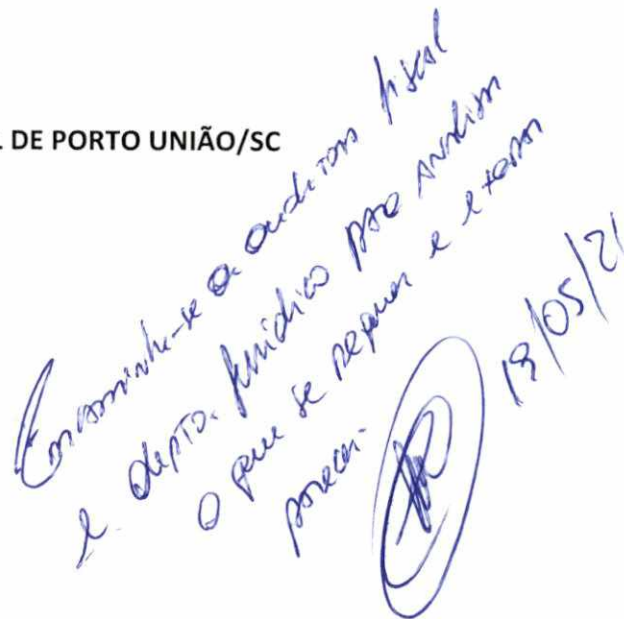 L DE PORTO UNIÃO/SC
Encaminhe-se a auditora fiscal
e depto. jurídico para análise
o que se requer e exarar
parecer.
19/05/21